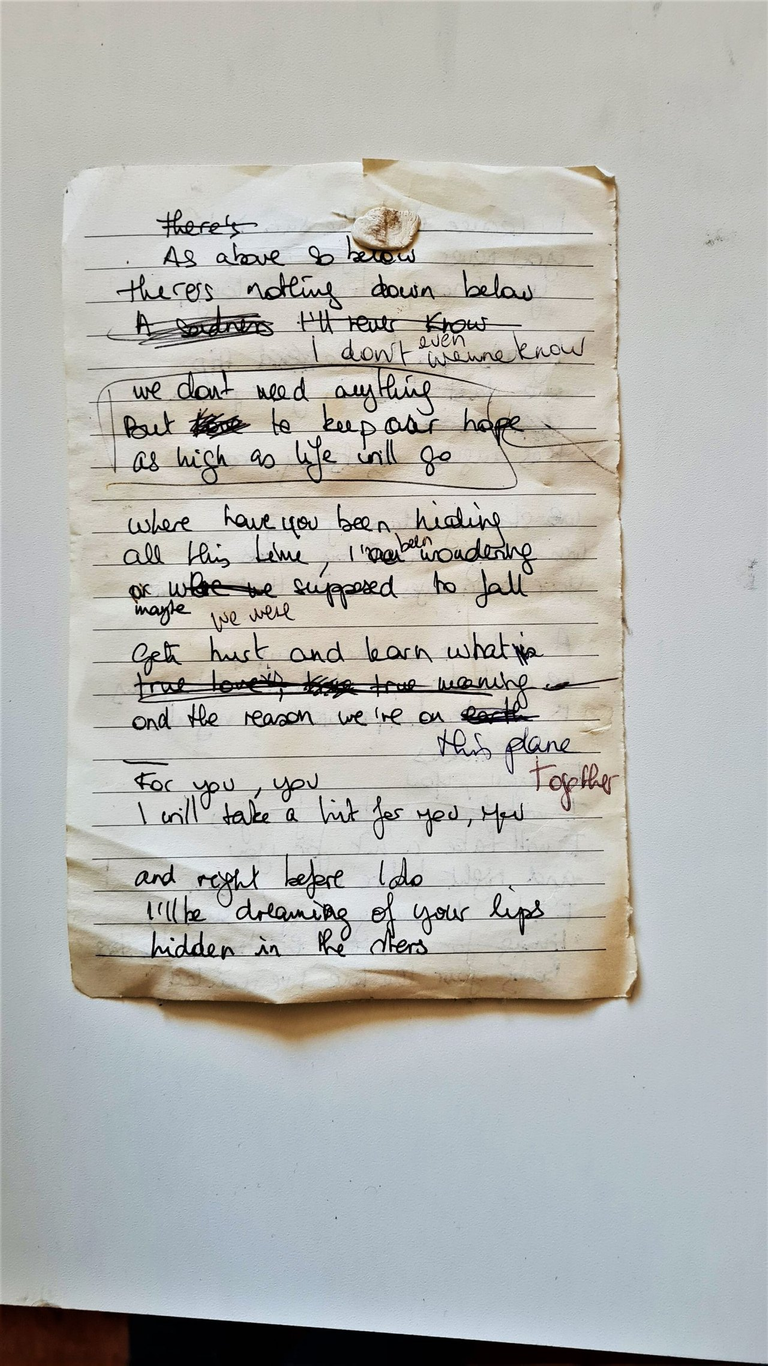 there's
As above so below
theres nothing down below
A sadness I'll never know
I don't even wanna know
we don't need anything
But to keep our hope
as high as life will go
where have you been hiding
all this time, I been wondering
or supposed to fall
maybe we were
Get hurt and learn what is
true love is, true meaning
and the reason we're on earth
this plane
Together
For you, you
I will take a hit for you, you
and right before I do
I'll be dreaming of your lips
hidden in the